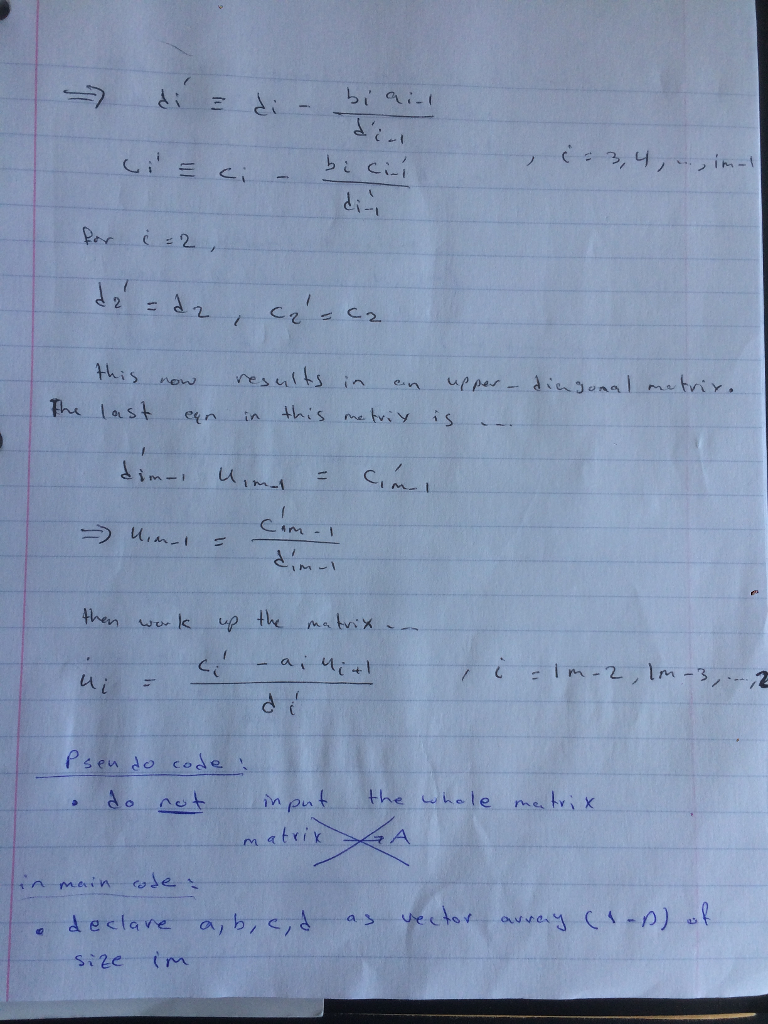 ⇒ di' ≡ di - bi ai-1 / d'i-1
ci' ≡ ci - bi ci-1' / di-1' , i = 3, 4, ..., im-1
for i = 2,
d2' = d2 , c2' = c2
this now results in an upper-diagonal matrix.
The last eqn in this matrix is ...
d'im-1 uim-1 = c'im-1
⇒ uim-1 = c'im-1 / d'im-1
then work up the matrix ...
ui = ci' - ai ui+1 / di' , i = Im-2, Im-3, ..., 2
Pseudo code :
• do not input the whole matrix
matrix A
in main code :
• declare a, b, c, d as vector array (1-D) of
size im